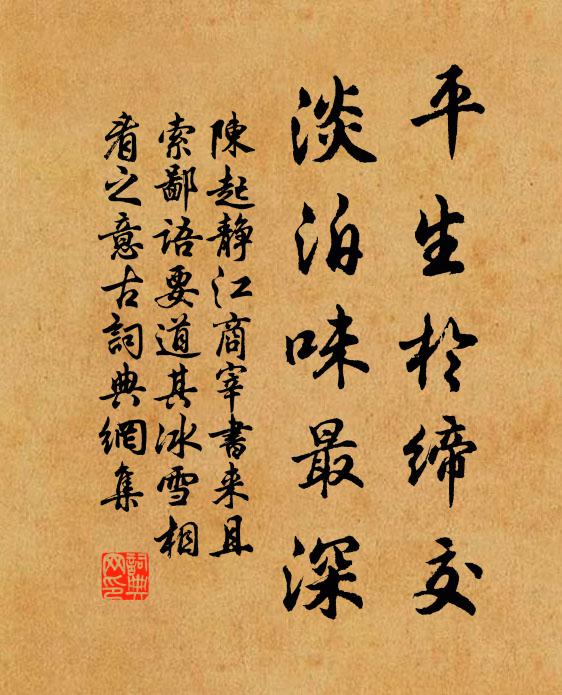 平生於締交
淡泊味最深
陳起静江商宰書来且
索鄙語要道其冰雪相
看之意古詞典網集
詞典
网印